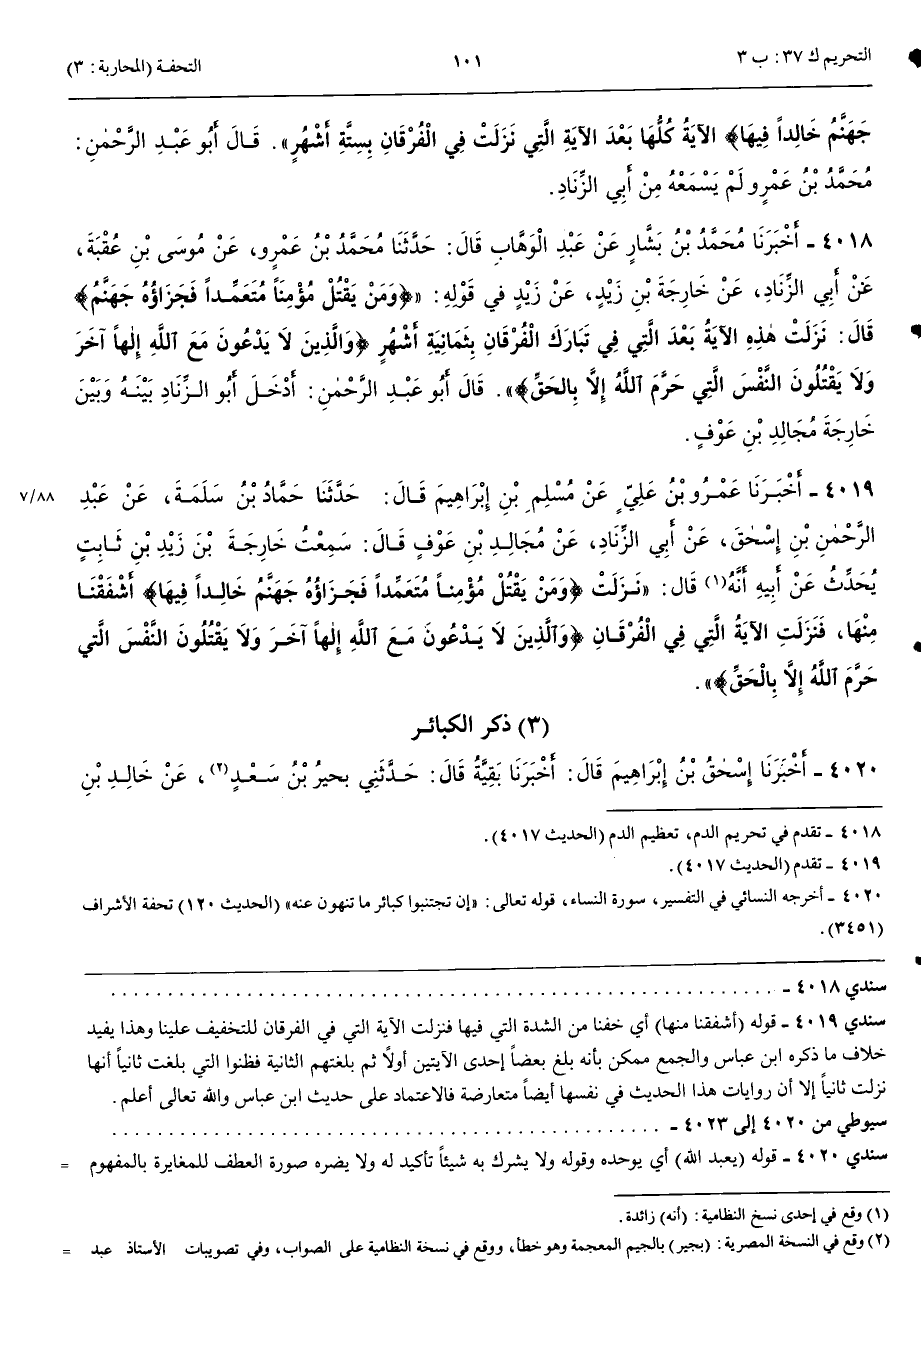 التحريم ك ٣٧: ب ٣ ١٠١ التحفة (المحاربة: ٣)
جَهَنَّمُ خَالِداً فِيهَا﴾ الآيَةُ كُلُّهَا بَعْدَ الآيَةِ الَّتِي نَزَلَتْ فِي الْفُرْقَانِ بِسِتَّةِ أَشْهُرٍ». قَالَ أَبُو عَبْدِ الرَّحْمٰنِ:
مُحَمَّدُ بْنُ عَمْرٍو لَمْ يَسْمَعْهُ مِنْ أَبِي الزِّنَادِ.
٤٠١٨ ـ أَخْبَرَنَا مُحَمَّدُ بْنُ بَشَّارٍ عَنْ عَبْدِ الْوَهَّابِ قَالَ: حَدَّثَنَا مُحَمَّدُ بْنُ عَمْرٍو، عَنْ مُوسَى بْنِ عُقْبَةَ،
عَنْ أَبِي الزِّنَادِ، عَنْ خَارِجَةَ بْنِ زَيْدٍ، عَنْ زَيْدٍ فِي قَوْلِهِ: «﴿وَمَنْ يَقْتُلْ مُؤْمِناً مُتَعَمِّداً فَجَزَاؤُهُ جَهَنَّمُ﴾
قَالَ: نَزَلَتْ هٰذِهِ الآيَةُ بَعْدَ الَّتِي فِي تَبَارَكَ الْفُرْقَانِ بِثَمَانِيَةِ أَشْهُرٍ ﴿وَالَّذِينَ لَا يَدْعُونَ مَعَ اللَّهِ إِلٰهاً آخَرَ
وَلَا يَقْتُلُونَ النَّفْسَ الَّتِي حَرَّمَ اللَّهُ إِلَّا بِالحَقِّ﴾». قَالَ أَبُو عَبْدِ الرَّحْمٰنِ: أَدْخَلَ أَبُو الزِّنَادِ بَيْنَهُ وَبَيْنَ
خَارِجَةَ مُجَالِدِ بْنِ عَوْفٍ.
٤٠١٩ ـ أَخْبَرَنَا عَمْرُو بْنُ عَلِيٍّ عَنْ مُسْلِمِ بْنِ إِبْرَاهِيمَ قَالَ: حَدَّثَنَا حَمَّادُ بْنُ سَلَمَةَ، عَنْ عَبْدِ ٧/٨٨
الرَّحْمٰنِ بْنِ إِسْحٰقَ، عَنْ أَبِي الزِّنَادِ، عَنْ مُجَالِدِ بْنِ عَوْفٍ قَالَ: سَمِعْتُ خَارِجَةَ بْنَ زَيْدِ بْنِ ثَابِتٍ
يُحَدِّثُ عَنْ أَبِيهِ أَنَّهُ(١) قَالَ: «نَزَلَتْ ﴿وَمَنْ يَقْتُلْ مُؤْمِناً مُتَعَمِّداً فَجَزَاؤُهُ جَهَنَّمُ خَالِداً فِيهَا﴾ أَشْفَقْنَا
مِنْهَا، فَنَزَلَتِ الآيَةُ الَّتِي فِي الْفُرْقَانِ ﴿وَالَّذِينَ لَا يَدْعُونَ مَعَ اللَّهِ إِلٰهاً آخَرَ وَلَا يَقْتُلُونَ النَّفْسَ الَّتِي
حَرَّمَ اللَّهُ إِلَّا بِالْحَقِّ﴾».
(٣) ذكر الكبائر
٤٠٢٠ ـ أَخْبَرَنَا إِسْحٰقُ بْنُ إِبْرَاهِيمَ قَالَ: أَخْبَرَنَا بَقِيَّةُ قَالَ: حَدَّثَنِي بحيرُ بْنُ سَعْدٍ(٢)، عَنْ خَالِدِ بْنِ
٤٠١٨ ـ تقدم في تحريم الدم، تعظيم الدم (الحديث ٤٠١٧).
٤٠١٩ ـ تقدم (الحديث ٤٠١٧).
٤٠٢٠ ـ أخرجه النسائي في التفسير، سورة النساء، قوله تعالى: «إن تجتنبوا كبائر ما تنهون عنه» (الحديث ١٢٠) تحفة الأشراف
(٣٤٥١).
سندي ٤٠١٨ ـ ...........................................................
سندي ٤٠١٩ ـ قوله (أشفقنا منها) أي خفنا من الشدة التي فيها فنزلت الآية التي في الفرقان للتخفيف علينا وهذا يفيد
خلاف ما ذكره ابن عباس والجمع ممكن بأنه بلغ بعضاً إحدى الآيتين أولاً ثم بلغتهم الثانية فظنوا التي بلغت ثانياً أنها
نزلت ثانياً إلا أن روايات هذا الحديث في نفسها أيضاً متعارضة فالاعتماد على حديث ابن عباس والله تعالى أعلم.
سيوطي من ٤٠٢٠ إلى ٤٠٢٣ ـ .................................................
سندي ٤٠٢٠ ـ قوله (يعبد الله) أي يوحده وقوله ولا يشرك به شيئاً تأكيد له ولا يضره صورة العطف للمغايرة بالمفهوم =
(١) وقع في إحدى نسخ النظامية: (أنه) زائدة.
(٢) وقع في النسخة المصرية: (بجير) بالجيم المعجمة وهو خطأ، ووقع في نسخة النظامية على الصواب، وفي تصويبات الأستاذ عبد =